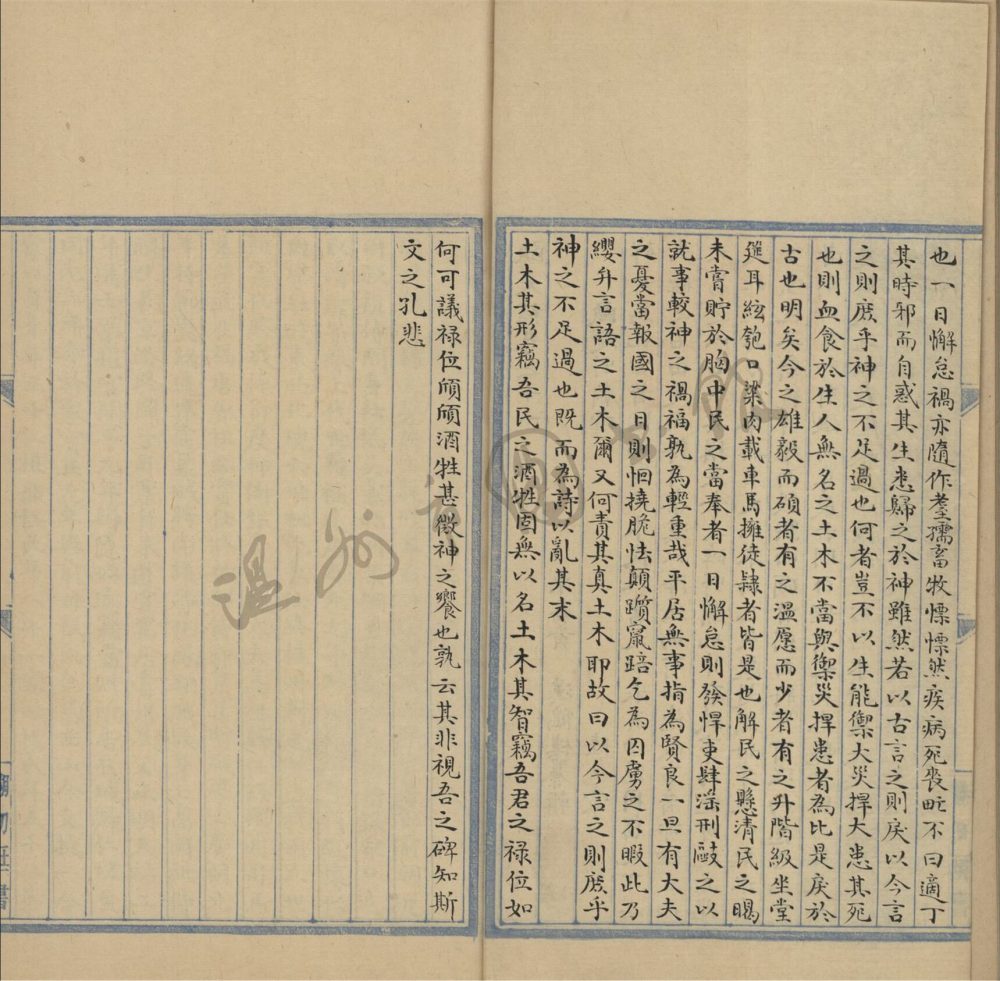 也一日懈怠禍亦隨作耋孺畜牧慄慄然疾病死喪甿不曰適丁
其時邪而自惑其生悉歸之於神雖然若以古言之則戾以今言
之則庶乎神之不足過也何者豈不以生能禦大災捍大患其死
也則血食於生人無名之土木不當與禦災捍患者為比是戾於
古也明矣今之雄毅而碩者有之溫愿而少者有之升階級坐堂
筵耳絃匏口粱肉載車馬擁徒隸者皆是也解民之懸清民之暍
未嘗貯於胸中民之當奉者一日懈怠則發悍吏肆淫刑敺之以
就事較神之禍福孰為輕重哉平居無事指為賢良一旦有大夫
之憂當報國之日則恛撓脆怯顛躓竄踣乞為囚虜之不暇此乃
纓升言語之土木爾又何責其真土木耶故曰以今言之則庶乎
神之不足過也既而為詩以亂其末
土木其形竊吾民之酒牲固無以名土木其智竊吾君之祿位如
何可議祿位頎頎酒牲甚微神之饗也孰云其非視吾之碑知斯
文之孔悲
温州